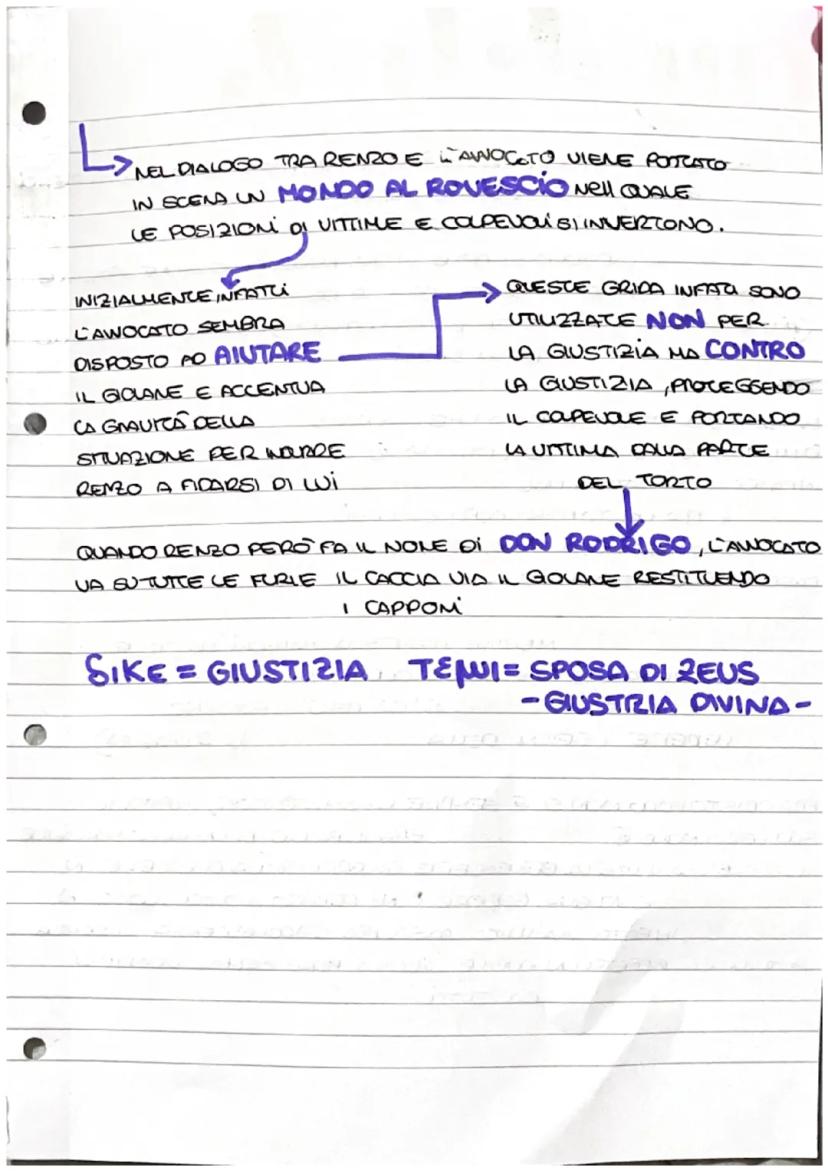 NEL DIALOGO TRA RENZO E L'AVVOCATO VIENE PORTATO
IN SCENA UN MONDO AL ROVESCIO NELL QUALE
LE POSIZIONI DI VITTIME E COLPEVOLI SI INVERTONO.
INIZIALMENTE INFATTI
L'AVVOCATO SEMBRA
DISPOSTO AD AIUTARE
IL GIOVANE E ACCENTUA
LA GRAVITÀ DELLA
SITUAZIONE PER INDURRE
RENZO A FIDARSI DI LUI
QUESTE GRIDA INFATTI SONO
UTILIZZATE NON PER
LA GIUSTIZIA MA CONTRO
LA GIUSTIZIA, PROTEGGENDO
IL COLPEVOLE E PORTANDO
LA VITTIMA DALLA PARTE
DEL TORTO
QUANDO RENZO PERÒ FA IL NOME DI DON RODRIGO, L'AVVOCATO
VA SU TUTTE LE FURIE IL CACCIA VIA IL GIOVANE RESTITUENDO
I CAPPONI
DIKE = GIUSTIZIA TEMI = SPOSA DI ZEUS
- GIUSTIZIA DIVINA -